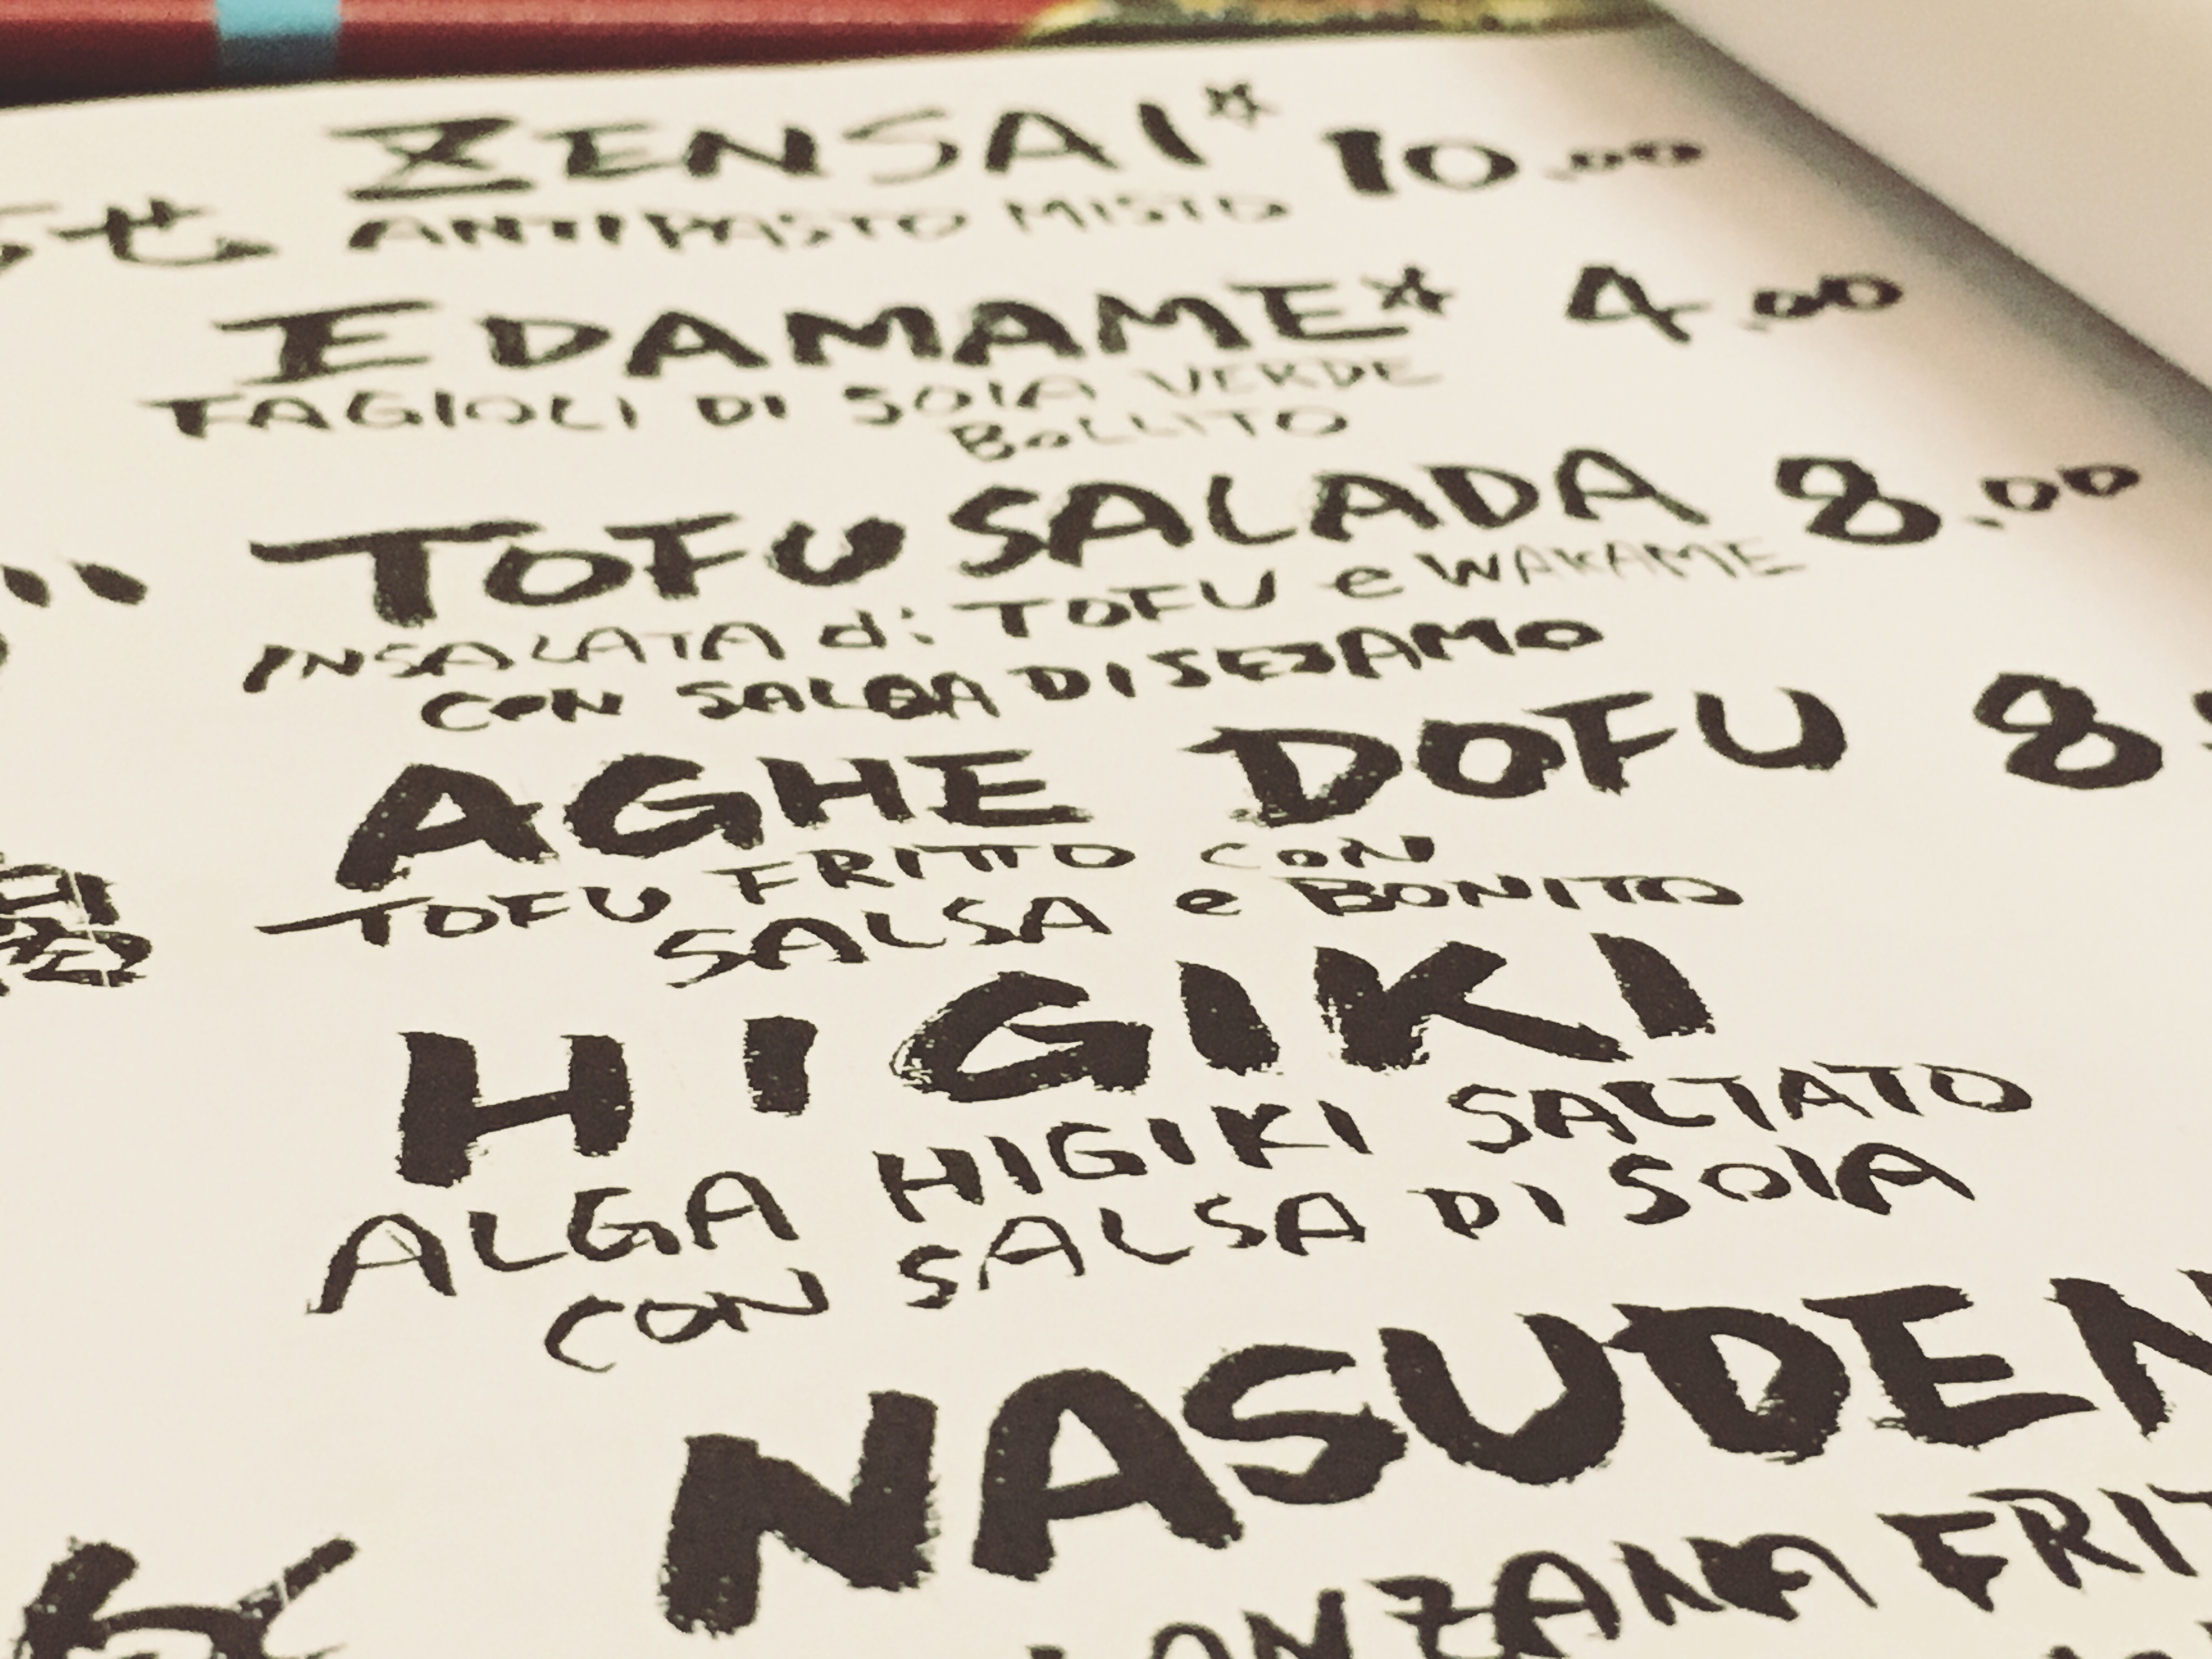 せ ZENSAI* 10.00
ANTIPASTO MISTO
EDAMAME* 4.00
FAGIOLI DI SOIA VERDE
BOLLITO
TOFU SALADA 8.00
INSALATA di TOFU e WAKAME
CON SALSA DI SESAMO
AGHE DOFU 8
TOFU FRITTO CON
SALSA e BONITO
HIGIKI
ALGA HIGIKI SALTATO
CON SALSA DI SOIA
NASUDEN
FRIT